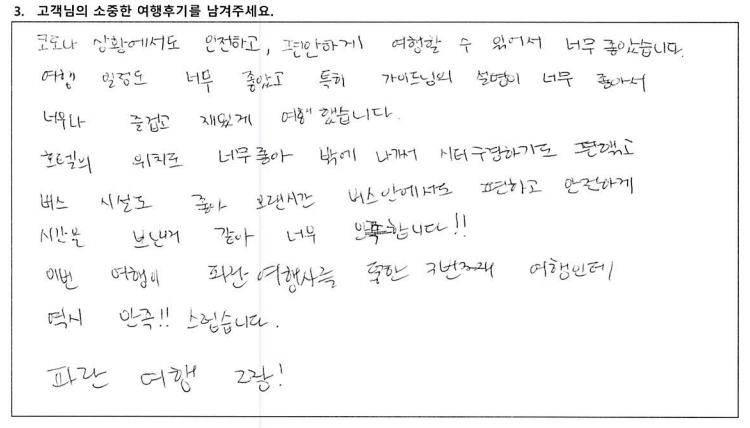 3. 고객님의 소중한 여행후기를 남겨주세요.
코로나 상황에서도 안전하고, 편안하게 여행할 수 있어서 너무 좋았습니다.
여행 일정도 너무 좋았고 특히 가이드님의 설명이 너무 좋아서
너무나 즐겁고 재밌게 여행했습니다.
호텔의 위치도 너무 좋아 밖에 나가서 시티구경하기도 편했고
버스 시설도 좋아 오랜시간 버스안에서도 편하고 안전하게
시간을 보낸거 같아 너무 만족합니다!!
이번 여행이 파란여행사를 통한 3번째 여행인데
역시 만족!! 스럽습니다.
파란 여행 그랑!